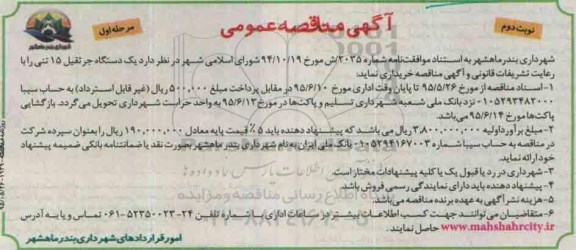 نوبت دوم
آگهی مناقصه عمومی
مرحله اول
شهرداری بندرماهشهر
شهرداری بندرماهشهر به استناد موافقت‌نامه شماره ۲۰۳۵/ش مورخ ۹۴/۱۰/۱۹ شورای اسلامی شهر در نظر دارد یک دستگاه جرثقیل ۱۵ تنی را با
رعایت تشریفات قانونی و آگهی مناقصه خریداری نماید:
۱-اسناد مناقصه از مورخ ۹۵/۵/۲۶ تا پایان وقت اداری مورخ ۹۵/۶/۱۰ در مقابل پرداخت مبلغ ۵۰۰,۰۰۰ ریال (غیر قابل استرداد) به حساب سیبا
۰۱۰۵۲۹۳۴۸۲۰۰۰ نزد بانک ملی شعبه شهرداری تسلیم و پاکت‌ها در مورخ ۹۵/۶/۱۳ به واحد حراست شهرداری تحویل می‌گردد. بازگشایی
پاکت‌ها مورخ ۹۵/۶/۱۴ می‌باشد.
۲-مبلغ برآورد اولیه ۳,۸۰۰,۰۰۰,۰۰۰ ریال می باشد که پیشنهاد دهنده باید ۵٪ قیمت پایه معادل ۱۹۰,۰۰۰,۰۰۰ ریال را بعنوان سپرده شرکت
در مناقصه به حساب سیبا شماره ۰۱۰۵۲۹۴۱۶۷۰۰۳ بانک ملی ایران به نام شهرداری بندر ماهشهر بصورت نقد یا ضمانتنامه بانکی ضمیمه پیشنهاد
خود ارائه نماید.
۳-شهرداری در رد یا قبول یک یا کلیه پیشنهادات مختار است.
۴-پیشنهاد دهنده باید دارای نمایندگی رسمی فروش باشد.
۵-هزینه نشر آگهی به عهده برنده مناقصه می‌باشد.
۶-متقاضیان می توانند جهت کسب اطلاعات بیشتر در ساعات اداری با شماره تلفن ۲۴-۰۶۱-۵۲۳۵۰۰۲۳ تماس و یا به آدرس
www.mahshahrcity.ir حاصل نمایند.
امور قراردادهای شهرداری بندرماهشهر